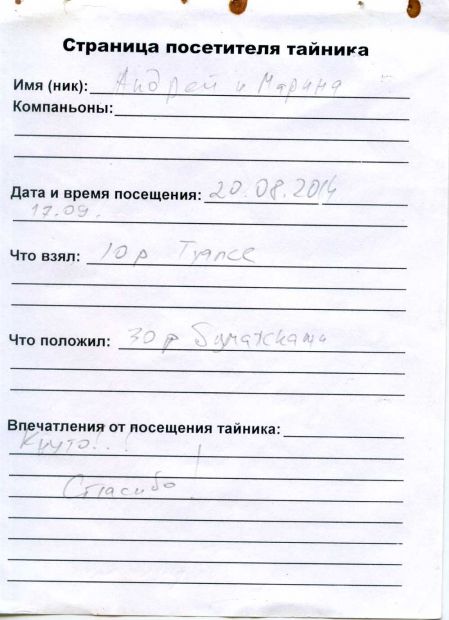 Страница посетителя тайника
Имя (ник): Андрей и Марина
Компаньоны:
Дата и время посещения: 20.08.2014
17.09.
Что взял: 10 р Туапсе
Что положил: 30 р бумажками
Впечатления от посещения тайника:
Круто!..!
Спасибо!